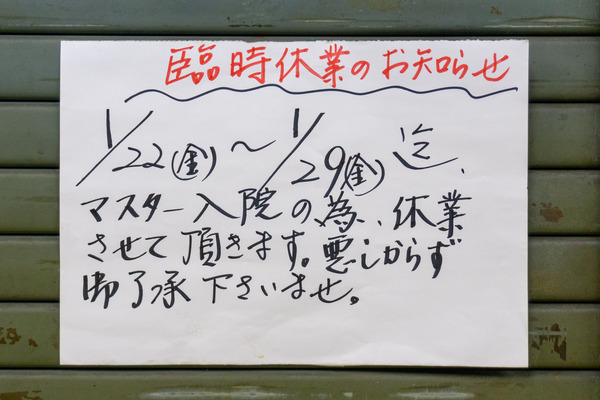 臨時休業のお知らせ
1/22(金)〜1/29(金)迄、
マスター入院の為、休業
させて頂きます。悪しからず
御了承下さいませ。